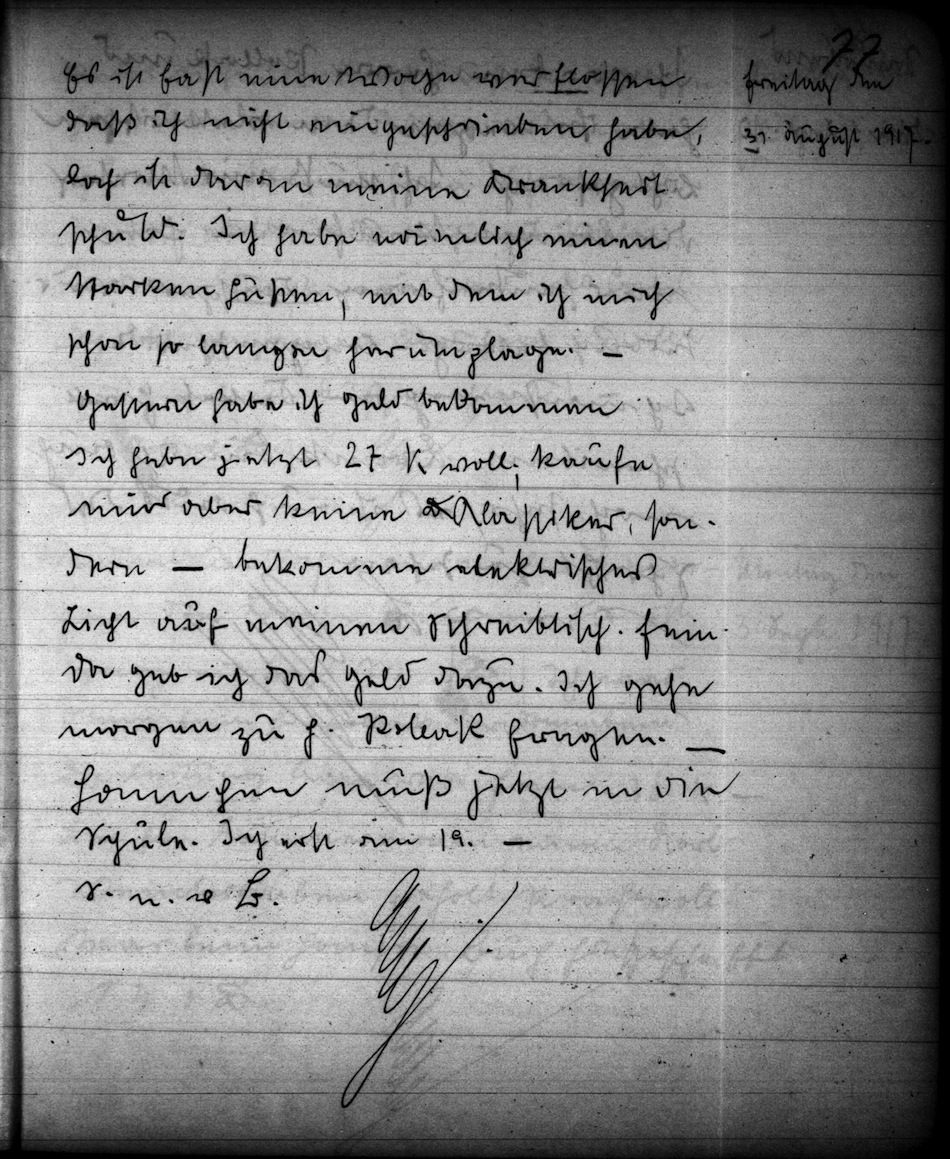 77
Freitag den
31. August 1917.
Es ist fast eine Woche verflossen
daß ich nicht eingeschrieben habe,
doch ist daran meine Krankheit
schuld. Ich habe nämlich einen
starken Husten, mit dem ich mich
schon so lange herumplage. —
Gestern habe ich Geld bekommen
Ich habe jetzt 27 K voll; kaufe
mir aber keine Klassiker, son-
dern — bekomme elektrisches
Licht auf meinen Schreibtisch. Fein.
Da geb ich das Geld dazu. Ich gehe
morgen zu H. Polak fragen. —
Hannchen muß jetzt in die
Schule. Ich erst am 19. —